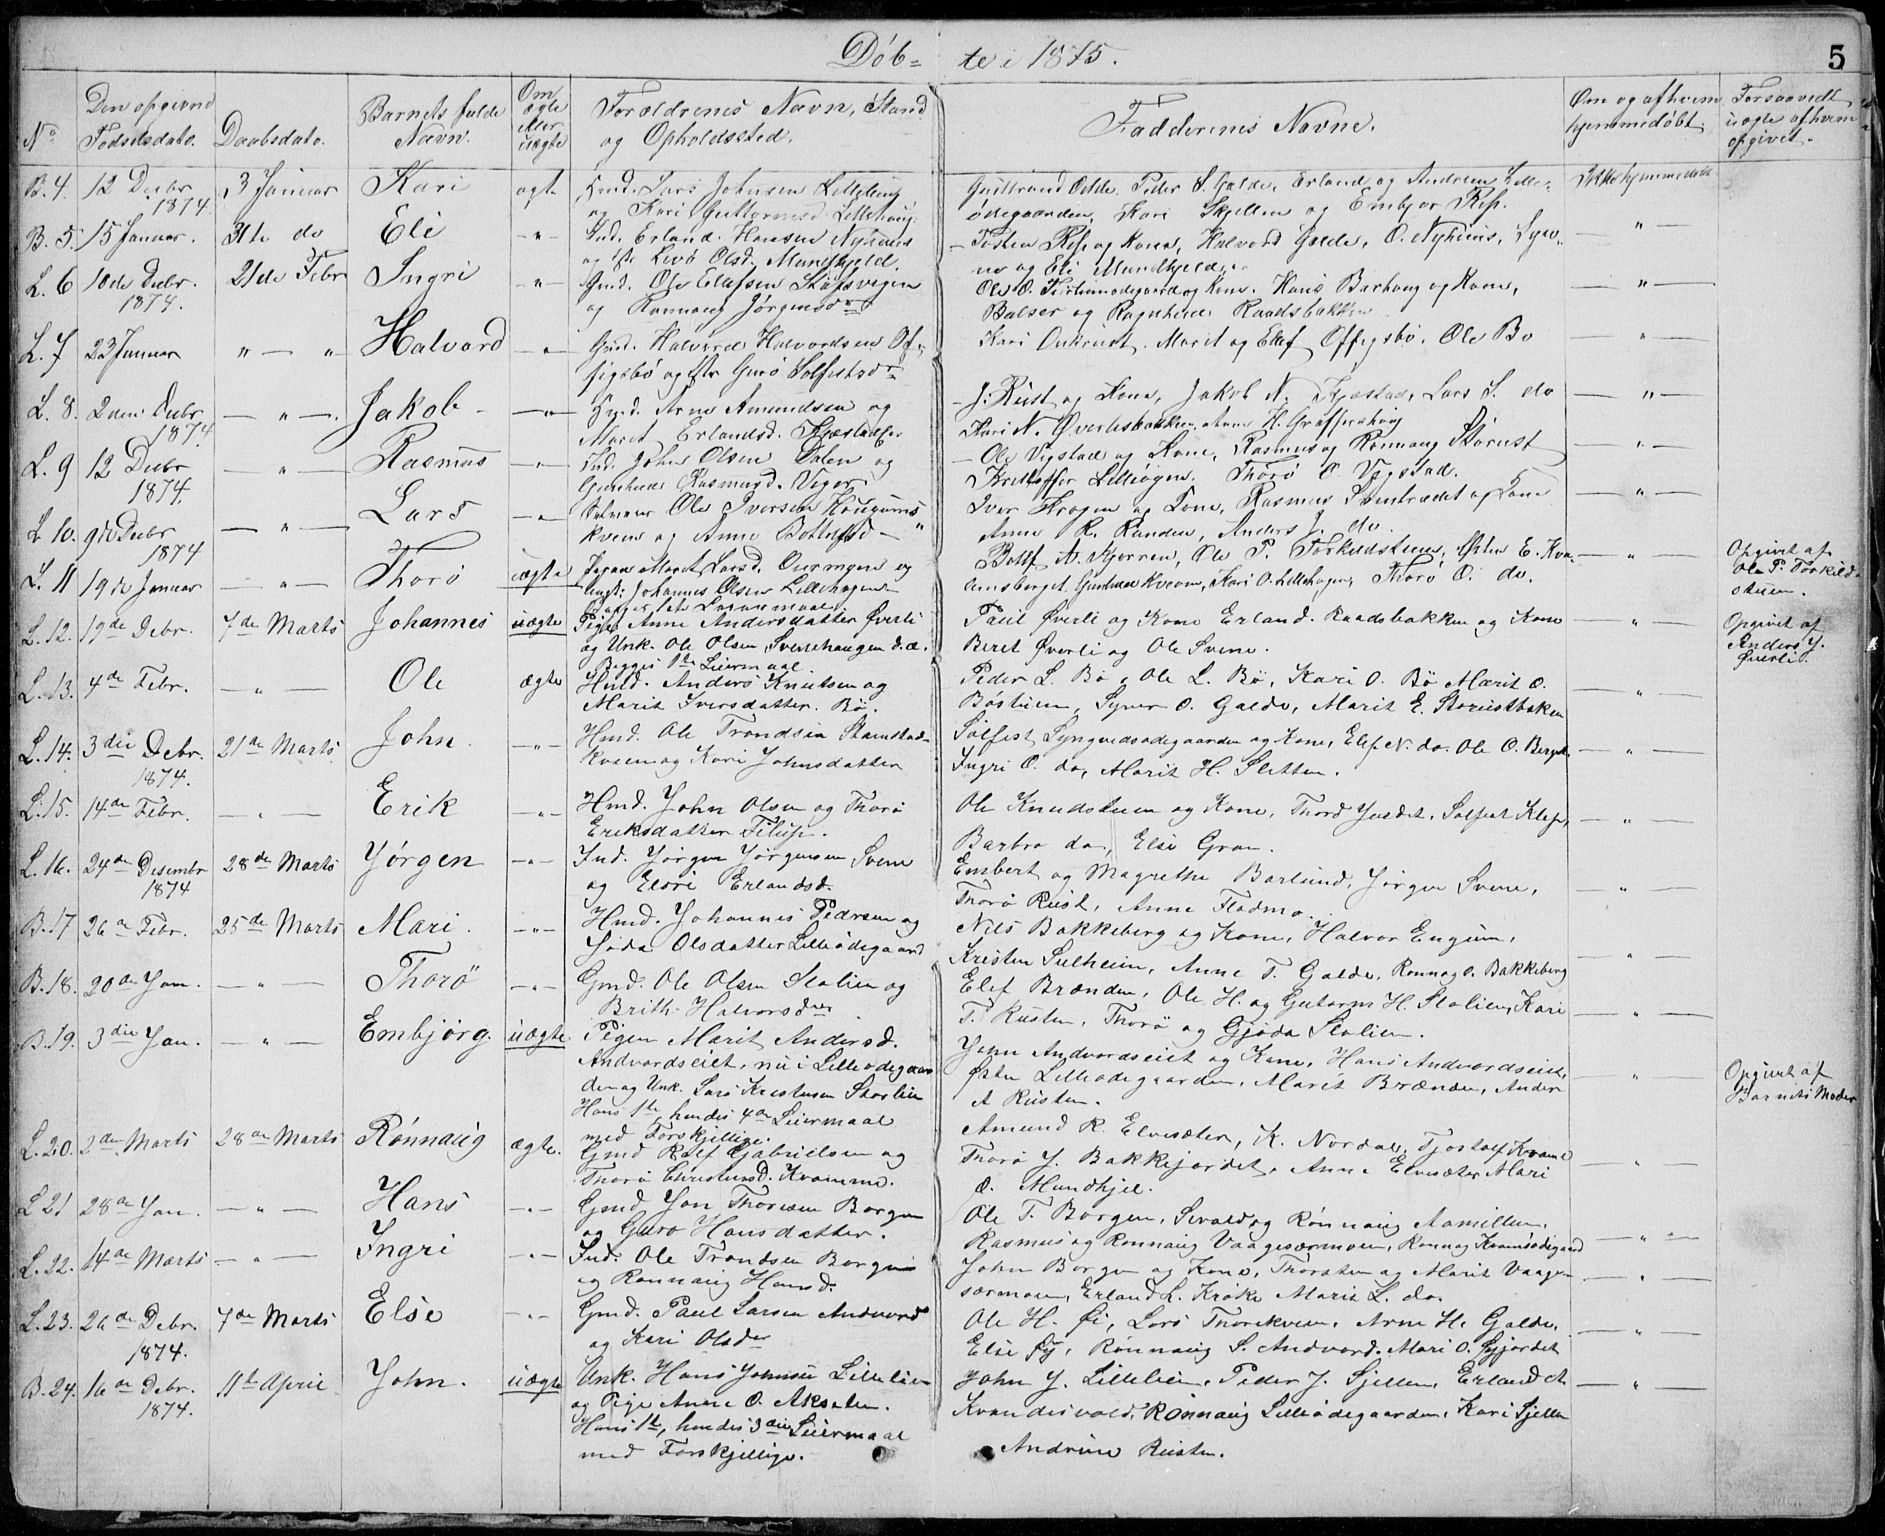 Døb= te i 1875.
5
No
Den opgivne Fødselsdato.
Daabsdato.
Barnets fulde Navn.
Om ægte eller uægte
Forældrenes Navn, Stand og Opholdssted.
Faddernes Navne.
Om og af hvem hjemmedøbt.
Forsaavidt uægte af hvem opgivet.
B. 4. 12 Decbr 1874 3 Januar Kari ægte Gmd. Lars Johnsen Lillehaug
og Kari Guttormsd. Lillehaug.
Guttrand Galde. Peder S. Galde, Erland og Andreas Lille-
ødegaarden, Kari Skjellen og Embjør Rep. Ikke hjemmedøbt
B. 5. 15 Januar. 31te do Eli -"- Ind. Erland Hansen Nyhuus
og Livø Olsd. Mundhjeld.
Tosten Rep. og Kone, Halvord Galde, O. Nyhuus, Syv.
ne og Eli Mundhjeld. — " —
L. 6 10de Decbr. 1874. 21de Febr Ingri -"- Gmd. Ole Elefsen
og Rønnaug Jørgensdr
Ole O. og Kone. Hans Barhaug og Kone,
Balser og Ragnhild Raadsbakken — " —
L. 7 23 Januar " — " Halvord -"- Gmd. Halvord Halvordsen Of-
figsbø og Guro Solfestsdr
Kari . Marit og Elef Offigsbø. Ole Bø — " —
L. 8. 2den Decbr 1874 — " —. Jakob -"- Gmd. Arne Amundsen og
Marit Erlandsd. Kjæstad.
J. Rust og Kone, Jakob N. Kjæstad, Lars S. do
Kari N. Øverlisbakken. Anne H. — " —
L. 9 12 Decbr 1874. — " — Rasmus -"- Ind. John Olsen og
Rasmusd.
Ole Vigstad og Kone, Rasmus og Rønnaug Storust
Kristoffer Lillesøgen. Thorø O Vigstad. — " —
L 10. 9de Decbr 1874 — " — Lars -"- Ole Iversen
kveen og Anne
Iver Krogen og Kone, Rasmus og Kone
Anne R. Randen, Anders J. do. — " —
L. 11 19de Januar — " — Thorø uægte Pigen Marit Larsd. og
Ungk: Johannes Olsen Lillehagen
Begges 1ste Leiermaal
A. Kjorren, Ole P. Torkildstuen, E. Kva-
Kari O. Lillehagen, Thorø O. do. — " — Opgivet af
Ole P. Torkild-
stuen.
L. 12. 19de Debr. 7de Marts Johannes uægte Pige Anne Andersdatter Øverli
og Unk. Ole Olsen Sveenhaugen d.æ.
Begges 1ste Leiermaal
Paul Øverli og Kone Erland Raadsbakken og Kone
Beret Øverli og Ole Svene. — " — Opgivet af
Anders J.
Øverli.
L. 13. 4de Febr. — " — Ole ægte Hmd. Anders Knutsen og
Marit Iversdatter. Bø.
Peder L. Bø, Ole L. Bø, Kari O. Bø Marit O.
Bøstuen, Syver O. Galde, Marit E. Storustbaken — " —
L. 14. 3die Debr. 1874. 21de Marts. John. -"- Hmd. Ole Trondsen
kveen og Kari Johnsdatter
Solfest Syngnedsødegaarden og Kone, Elef N. do. Ole O. Berget
Ingri O. do, Marit H. Sletten. — " —
L. 15. 14de Febr. — " — Erik -"- Hmd. John Olsen og Thorø
Eriksdatter Tilup.
Ole Knudstuen og Kone, Thord , Solfest Klep,
Barbra do., Else Gran. — " —
L. 16. 24de Desembr 1874 28de Marts Jørgen -"- Ind. Jørgen Jørgensen Svene
og Erlandsd.
Embert og Magrethe Barlund, Jørgen Svene,
Thorø Rust, Anne Fladmo. — " —
B. 17 26de Febr. 25de Marts Mari. -"- Hmd. Johannes Pedersen og
Olsdatter Lilleødegaard
Nils Bakkeberg og Kone, Halvor Engum,
Kristen Sulheim, Anne T. Galde, Rønnog O. Bakkeberg — " —
B. 18. 20de Jan. — " — Thorø -"- Gmd. Ole Olsen Stalien og
Brith Halvorsdr
Elef Brænden, Ole H. og Gutorm H. Stalien, Kari
T. Rusten, Thorø og Gjøda Stalien. — " —
B. 19. 3die Jan. — " — Embjørg. uægte Pigen Marit Andersd.
Andvordseiet, nu i Lilleødegaar
den og Unk. Lars Kristensen Storlien
Hans 1ste, hendes 4de Leiermaal
med Forskjellige.
John Andvordseiet og Kone, Hans Andvordseiet,
Lilleødegaarden, Marit Brænden, Anders
A Rusten. — " — Opgivet af
Barnets Moder
L. 20. 2den Marts 28de Marts Rønnaug ægte. Gmd Rolf Gabrielsen og
Thorø Christensd. Kvamme.
Amund R. Elvesæter, K. Nordal, Tjostolf Kvame
Thorø J. Bakkejordet, Anne Elvesæter, Mari
O. Mundhjel. — " —
L 21 28de Jan. — " — Hans -"- Gmd. Jon Thorsen Borgen
og Guro Hansdatter.
Ole T. Borgen, Sevald og Rønnaug Aamillem,
Rasmus og Rønnaug Vaagesærmoen, Rønnog Kvamsødegaard — " —
L. 22. 14de Marts — " — Ingri -"- Ind. Ole Trondsen Borgen
og Rønnaug Hansd.
John Borgen og Kone, Thorsten og Marit Vaage-
særmoen, Erland L. Kroke Marit L. do. — " —
L. 23. 26de Debr. 1874. 7de Marts Else -"- Gmd. Paul Larsen Andvord
og Kari Olsdr
Ole H. Øi, Lars Thorekveen, Arne H. Galde,
Else Øy, Rønnaug S. Andvord. Mari O. Gjordet — " —
B. 24. 16de Debr. 1874. 11te April John. uægte Unk. Hans Johnsen Lillelien
og Pige Anne O. Akselen.
Hans 1ste, hendes 3die Leiermaal
med Forskjellige.
John J. Lillelien, Peder J. Sjellen, Erland A
Kvandesvold, Rønnaug Lilleødegaarden, Kari Sjellen
Andrine Rusten. — " —